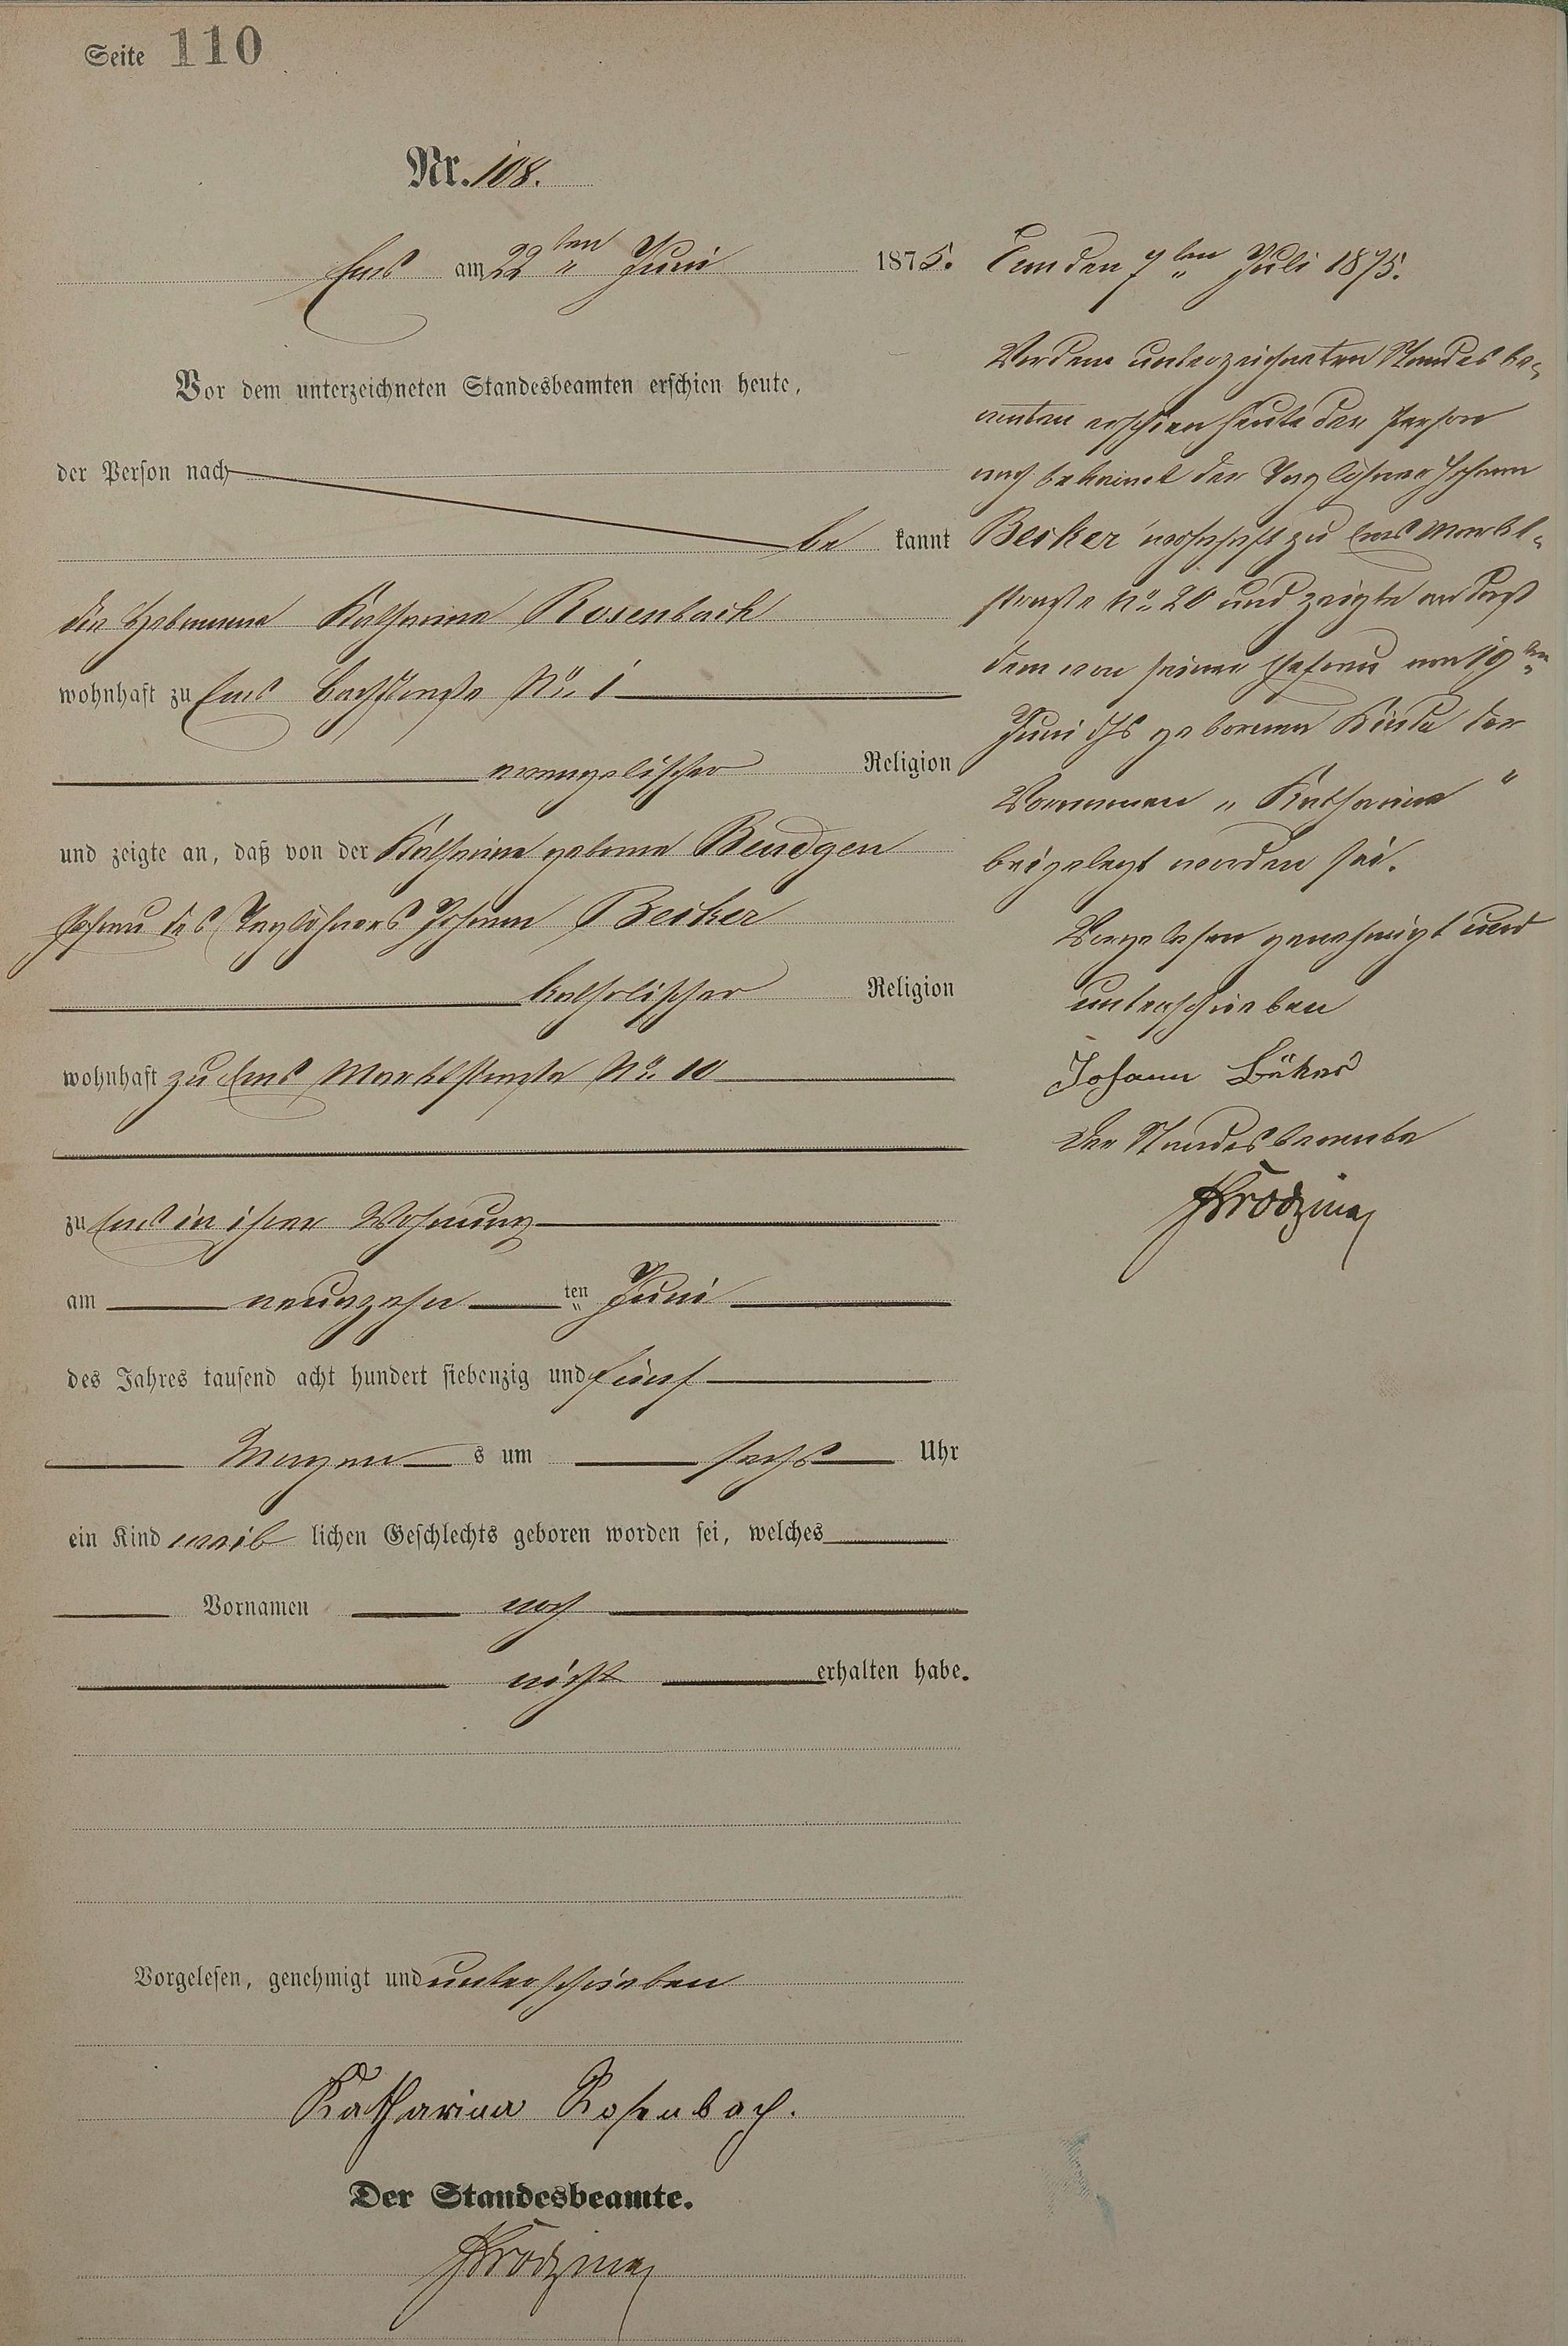 Seite 110
Nr. 108.
Ems am 22ten Juni 1875.
Vor dem unterzeichneten Standesbeamten erschien heute,
der Person nach
be kannt
die Hebamme Katharina Rosenbach
wohnhaft zu Ems Bachstraße No. 1
evangelischer Religion
und zeigte an, daß von der Katharina geborene Bendgen
Ehefrau des Taglöhners Johann Becker
katholischer Religion
wohnhaft zu Ems Marktstraße No. 10
zu Ems in ihrer Wohnung
am neunzehn ten Juni
des Jahres tausend acht hundert siebenzig und fünf
Morgen s um sechs Uhr
ein Kind weib lichen Geschlechts geboren worden sei, welches
Vornamen noch
nicht erhalten habe.
Vorgelesen, genehmigt und unterschrieben
Katharina Rosenbach.
Der Standesbeamte.
Ems den 7ten Juli 1875.
Vor dem unterzeichneten Standesbe-
amten erschien heute der Person
nach bekannt der Taglöhner Johann
Becker wohnhaft zu Ems Markt-
straße No. 20 und zeigte an daß
dem von seiner Ehefrau am 19ten
Juni ds Js geborenen Kinde der
Vornamen „Katharina"
beigelegt worden sei.
Vorgelesen genehmigt und
unterschrieben
Johann Bäker
Der Standesbeamte